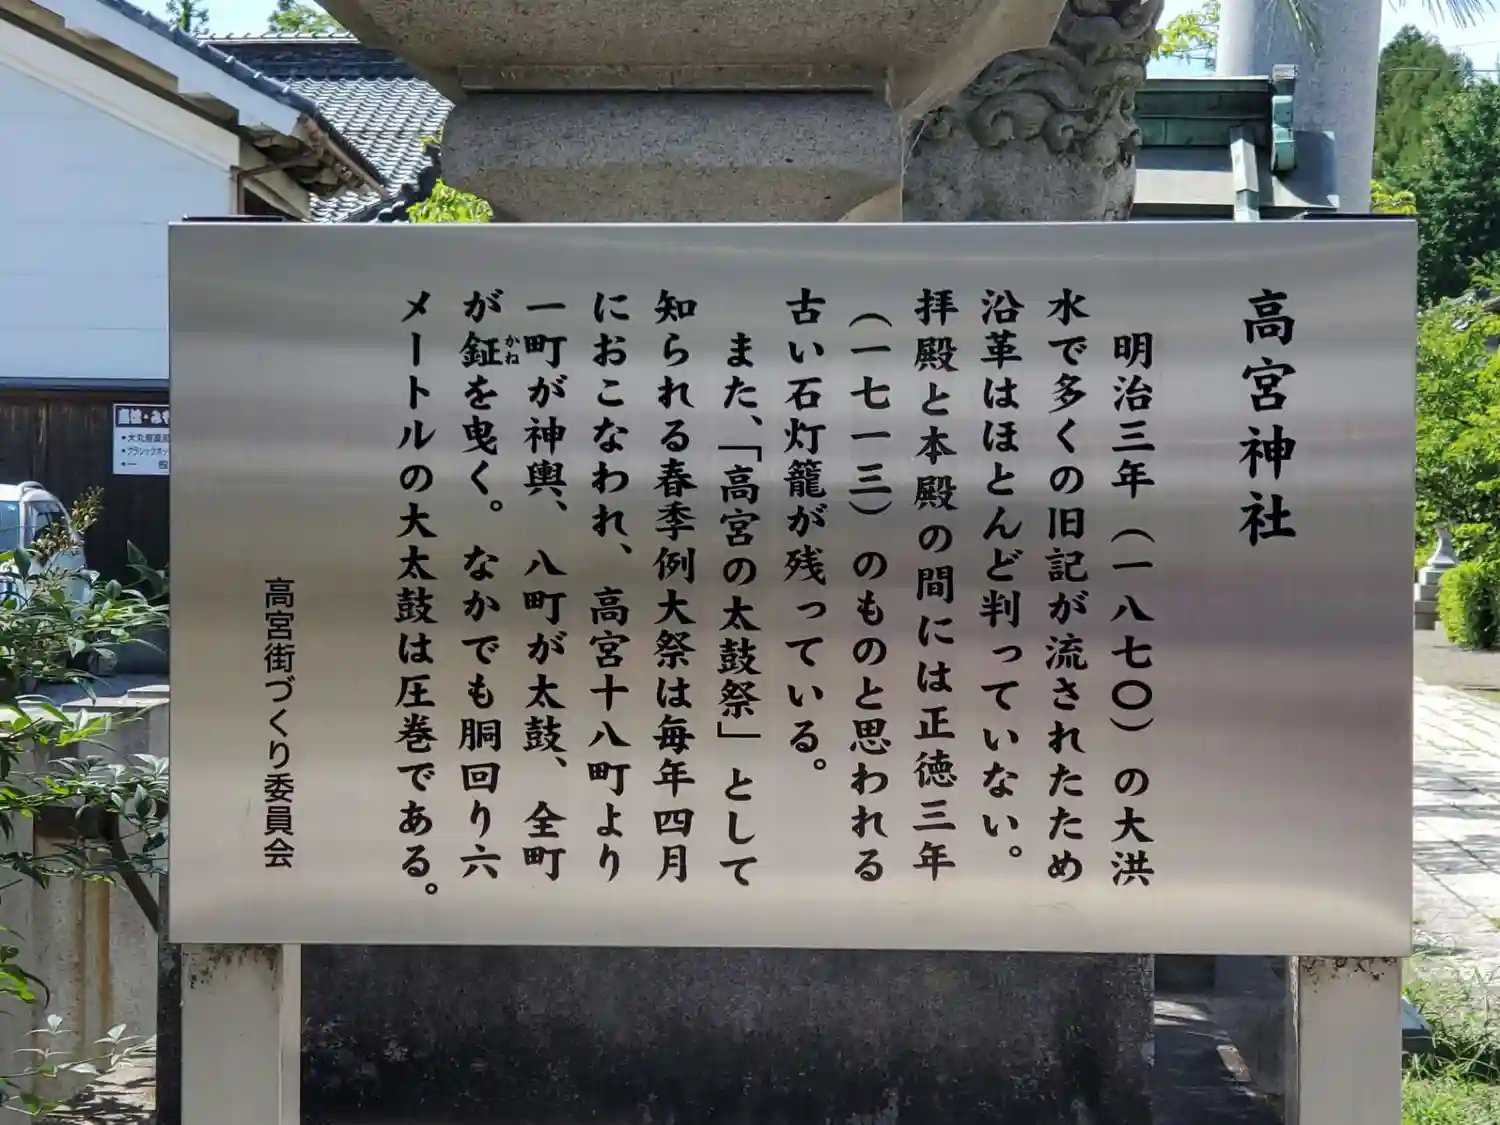 高宮神社
明治三年（一八七〇）の大洪
水で多くの旧記が流されたため
沿革はほとんど判っていない。
拝殿と本殿の間には正徳三年
（一七一三）のものと思われる
古い石灯籠が残っている。
また、「高宮の太鼓祭」として
知られる春季例大祭は毎年四月
におこなわれ、高宮十八町より
一町が神輿、八町が太鼓、全町
が鉦を曳く。なかでも胴回り六
かね
メートルの大太鼓は圧巻である。
高宮街づくり委員会